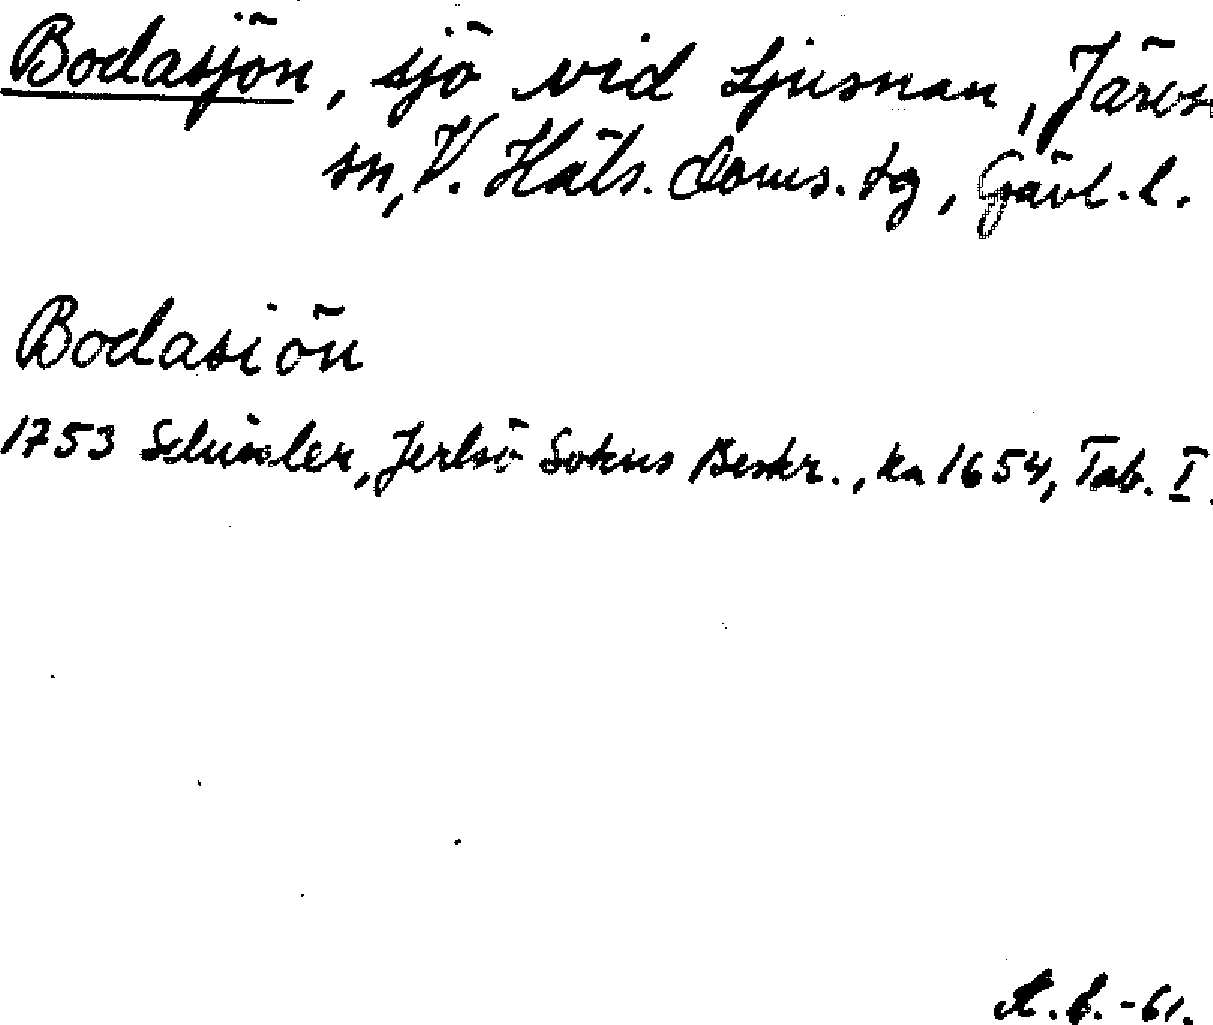 Bodasjön, sjö vid Ljusnan, Järvs
sn, V. Häls. doms. tg, Gävl. l.
Bodasiön
1753 Schissler, Jerlsö Sokns Beskr., ka 1654, Tab. I.
-61.